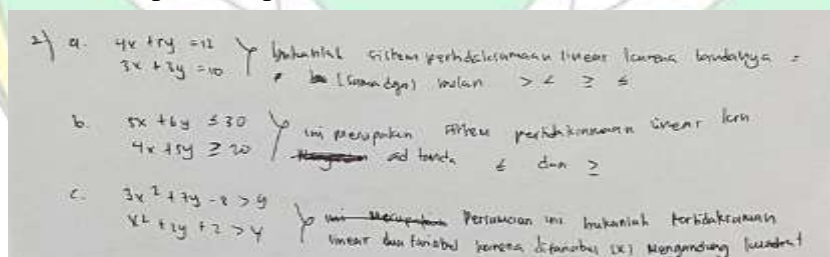 2) a. 4x + 5y = 12 bukanlah sistem pertidaksamaan linear karena tandanya =
3x + 3y = 10 (sama dgn) bukan > < ≥ ≤
b. 5x + 6y ≤ 30 ini merupakan sistem pertidaksamaan linear krn
4x + 5y ≥ 20 ad tanda ≤ dan ≥
c. 3x² + 7y - 8 > 9 Persamaan ini bukanlah pertidaksamaan
x² + 2y + 2 > 4 linear dua variabel karena divariabel (x) mengandung kuadrat